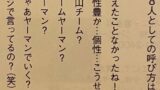 ８人としての呼び方は
えたことなかったね！
性豊か…個性…こうせ
山チーム？
ームヤーマン？
ゃあヤーマンでいく？
ジで言ってるの？（笑）